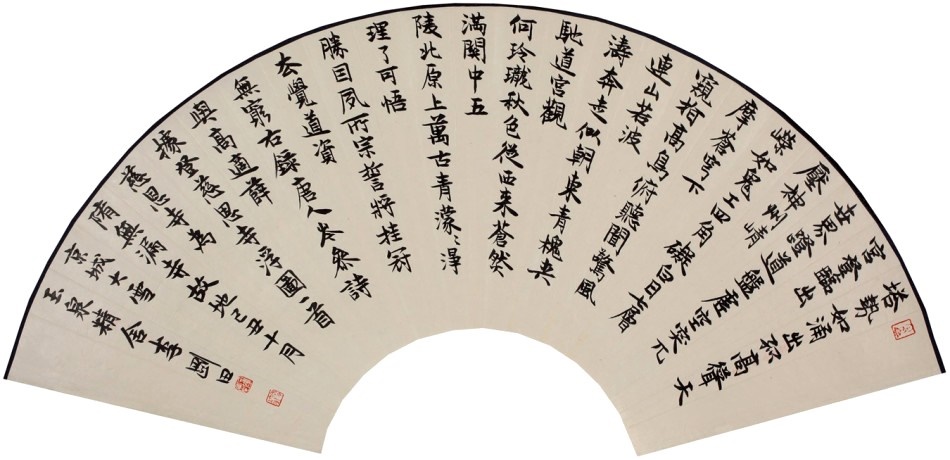 塔勢如涌出孤高聳天
宮登臨出
世界蹬道盤虛空突兀
壓神州崢
嶸如鬼工四角礙白日七層
摩蒼穹下
窺指高鳥俯聽聞驚風
連山若波
濤奔走似朝東青槐夾
馳道宮觀
何玲瓏秋色從西来蒼然
滿關中五
陵北原上萬古青濛〻淨
理了可悟
勝因夙所宗誓將挂冠
去覺道資
無窮右錄唐人岑參詩
與高適薛
據登慈恩寺浮圖一首
慈恩寺為
隋無漏寺故地己丑十月
京城大雪
玉泉精舍李剛田